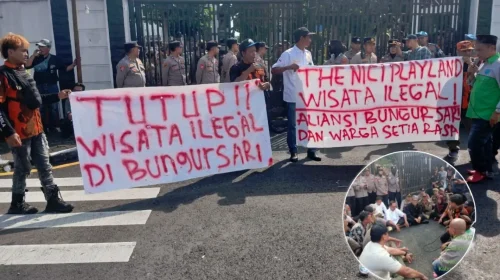 TUTUP!!
WISATA ILEGAL
DI BUNGURSARI.
THE NICI PLAYLAND
WISATA ILEGAL!
ALIANSI BUNGUR SARI
DAN WARGA SETIA RASA